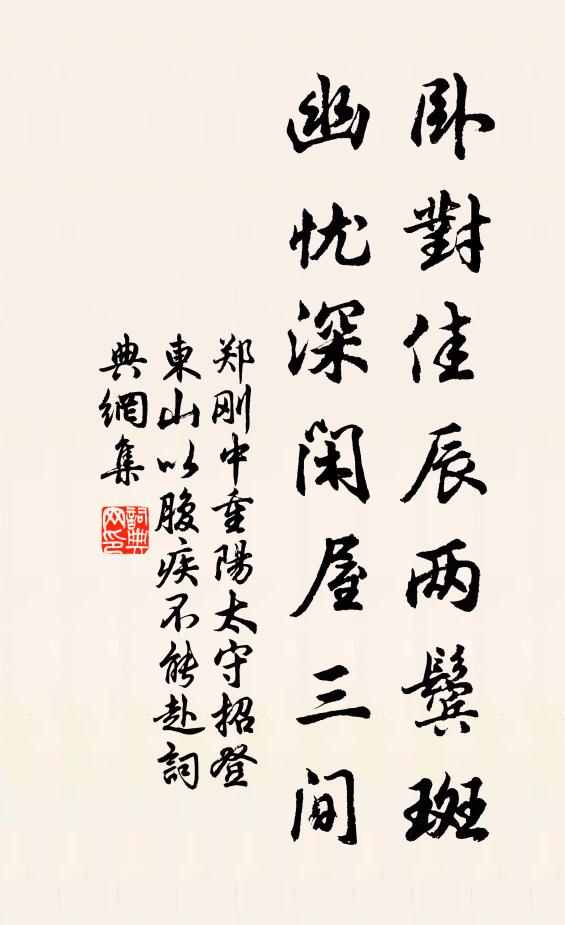 卧對佳辰两鬓斑
幽忧深闲屋三间
郑刚中重陽太守招登
東山以腹疾不能赴詞
典網集
詞典网印